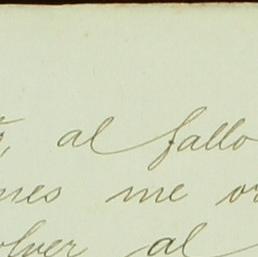 , al fallo
nes me or
olver al